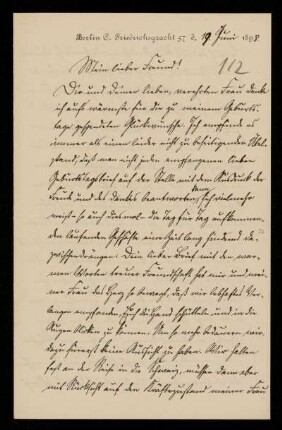 Berlin C. Friedrichsgracht 57 d. 19 Juni 1898
112
Mein lieber Freund!
Dir und Deiner lieben, verehrten Frau danke
ich aufs wärmste für die zu meinem Geburts-
tage gespendeten Glückwünsche. Ich empfinde es
immer als einen leider nicht zu beseitigenden Übel-
stand, daß man nicht jeden empfangenen lieben
Geburtstagsbrief auf der Stelle mit dem Ausdruck der
Freude und des Dankes beantworten kann, sich vielmehr
meist so auch diesmal die Tag für Tag aufkommen-
den laufenden Geschäfte eine Zeit lang hindernd da-
zwischendrängen. Dein lieber Brief mit den war-
men Worten treuer Freundschaft hat mir und mei-
ner Frau das Herz so bewegt, daß wir lebhaftes Ver-
langen empfanden, Euch die Hand schütteln und in die
Augen blicken zu können. Um so mehr bedauern wir,
dazu vorerst keine Aussicht zu haben. Wir halten
fest an der Reise in die Schweiz, müssen dann aber
mit Rücksicht auf den Kräftezustand meiner Frau